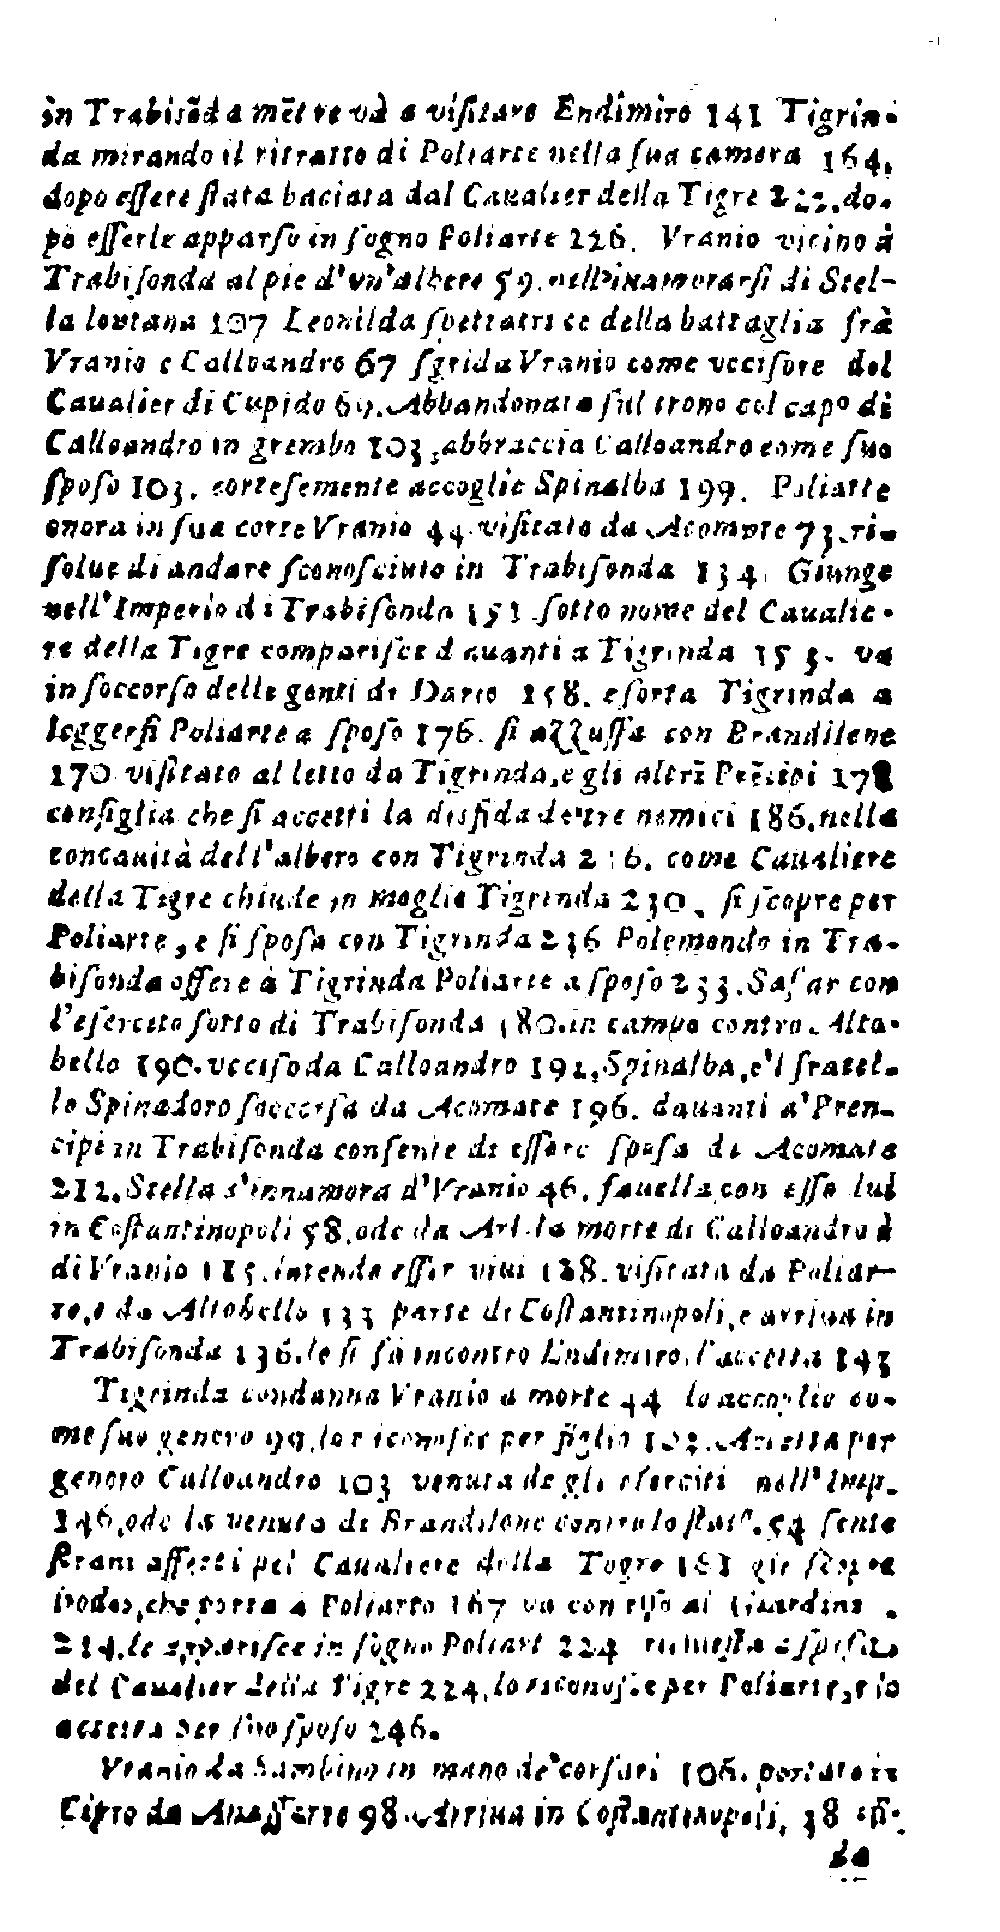 in Trabisōda mētre và a visitare Endimiro 141 Tigrin-
da mirando il ritratto di Poliarte nella sua camera 164.
dopo essere stata baciata dal Caualier della Tigre 222. do-
po esserle apparso in sogno Poliarte 226. Vranio vicino à
Trabisonda al pie d'vn'albero 59. nell'inamorarsi di Stel-
la lontana 107 Leonilda spettatrice della battaglia frà
Vranio e Calloandro 67 sgrida Vranio come vccisore del
Caualier di Cupido 69. Abbandonata sul trono col capo di
Calloandro in grembo 103, abbraccia Calloandro come suo
sposo 103. cortesemente accoglie Spinalba 199. Poliarte
onora in sua corte Vranio 44. visitato da Acomate 73. ri-
solue di andare sconosciuto in Trabisonda 134. Giunge
nell'Imperio di Trabisonda 151 sotto nome del Caualie-
re della Tigre comparisce dauanti a Tigrinda 153. va
in soccorso delle genti di Dario 158. esorta Tigrinda a
leggersi Poliarte a sposo 176. si azzuffa con Brandilone
170 visitato al letto da Tigrinda, e gli altri Prēcipi 178
consiglia che si accetti la disfida de'tre nemici 186. nella
concauità dell'albero con Tigrinda 216. come Caualiere
della Tigre chiude in moglie Tigrinda 230. si scopre per
Poliarte, e si sposa con Tigrinda 236 Polemondo in Tra-
bisonda offere à Tigrinda Poliarte a sposo 233. Safar con
l'esercito sotto di Trabisonda 180. in campo contro Alta-
bello 190. vcciso da Calloandro 192, Spinalba, e'l fratel-
lo Spinadoro soccorsa da Acomate 196. dauanti a'Pren-
cipi in Trabisonda consente di essere sposa di Acomate
212. Stella s'innamora d'Vranio 46. fauella con esso lui
in Costantinopoli 58. ode da Arl. la morte di Calloandro è
di Vranio 115. intende esser viui 128. visitata da Poliar-
te, e da Altobello 133 parte di Costantinopoli, e arriua in
Trabisonda 136. le si fà incontro Endimiro, l'accetta 143
Tigrinda condanna Vranio a morte 44 lo accoglie co-
me suo genero 99, lo riconosce per figlio 102. Accetta per
genero Calloandro 103 venuta de gli eserciti nell'Imp.
146, ode la venuta di Brandilone contro lo stato. 54 sente
strani affetti pel Caualiere della Togre 161 gli
che porta a Poliarto 167 va con esso ai Giardini
214, le apparisce in sogno Poliart 224
del Caualier della Tigre 224, lo riconosce per Poliarte, e lo
accetta per suo sposo 246.
Vranio da Bambino in mano de'corsari 106. portato in
Cipro da Anasserre 98. Arriua in Costantinopoli, 38
da